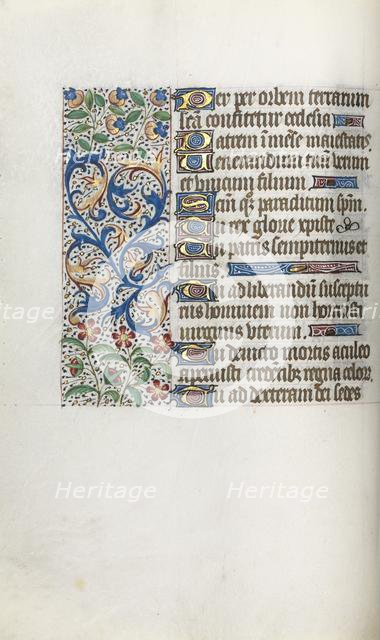 Te per orbem terrarum
scā confitetur ecclesia
Patrem īmēse maiestatis
Venerandum tuū verum
et unicum filium
Sanctū q̄z paraclitum spm̄
Tu rex glorie xpiste
Tu patris sempiternus es
filius
Tu ad liberandū susceptu
rus hominem non horruisti
virginis uterum
Tu devicto mortis aculeo
aperuisti credētibz regna celorz
Tu ad dexteram dei sedes
Heritage
Heritage
Heritage
Heritage
Heritage
Heritage